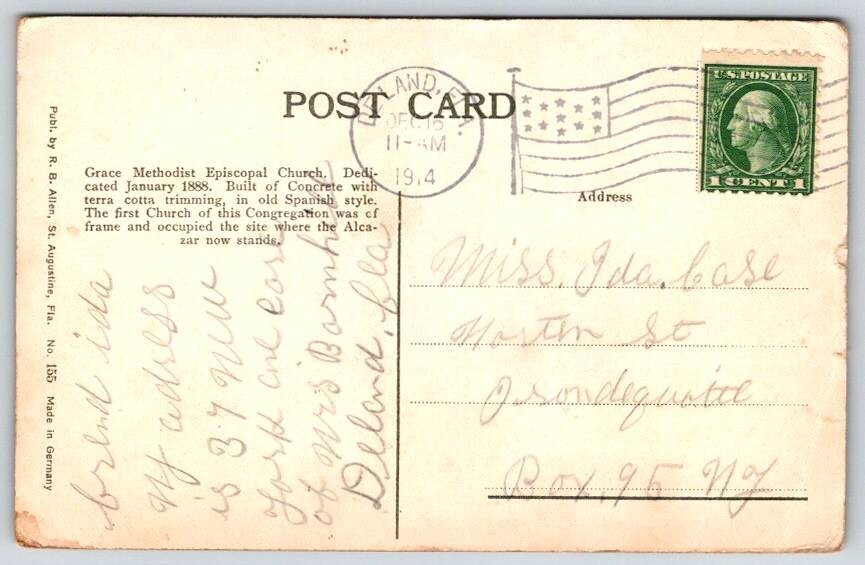 POST CARD
DELAND, FLA.
DEC 15
11-AM
1914
U.S. POSTAGE
1 CENT 1
Publ. by R. B. Allen, St. Augustine, Fla. No. 155 Made in Germany
Grace Methodist Episcopal Church. Dedi-
cated January 1888. Built of Concrete with
terra cotta trimming, in old Spanish style.
The first Church of this Congregation was of
frame and occupied the site where the Alca-
zar now stands.
Address
frend ida
My adress
is 37 New
York ave care
of Mrs Barnhart
Deland, Fla
Miss. Ida. Case
Norten St
Irondequoite
Box. 95 NY